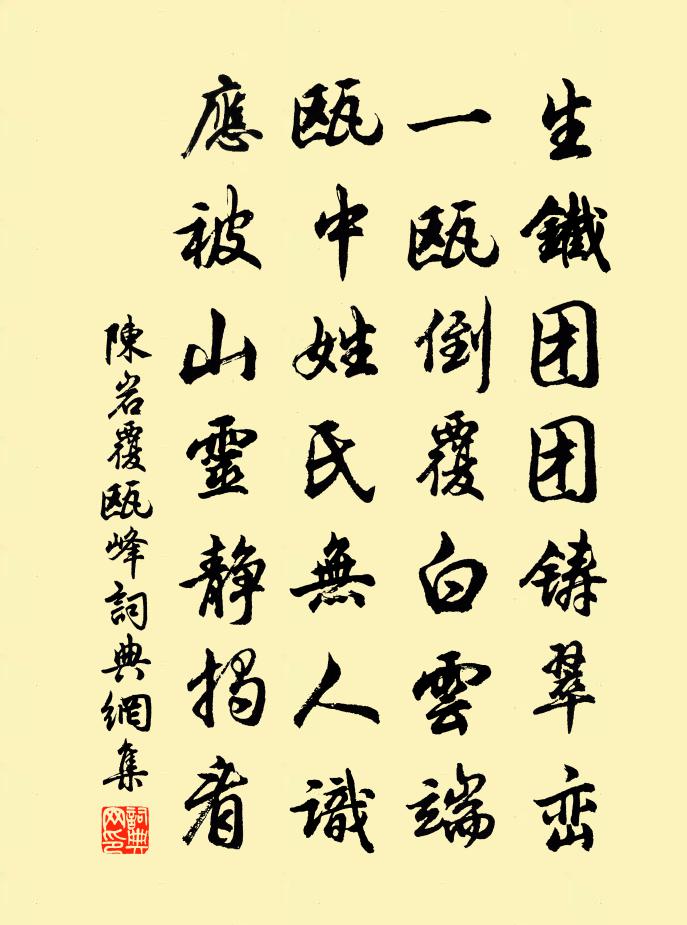 生鐵团团鑄翠峦
一瓯倒覆白雲端
瓯中姓氏無人識
應被山靈静揭看
陳岩覆瓯峰詞典網集
詞典网印